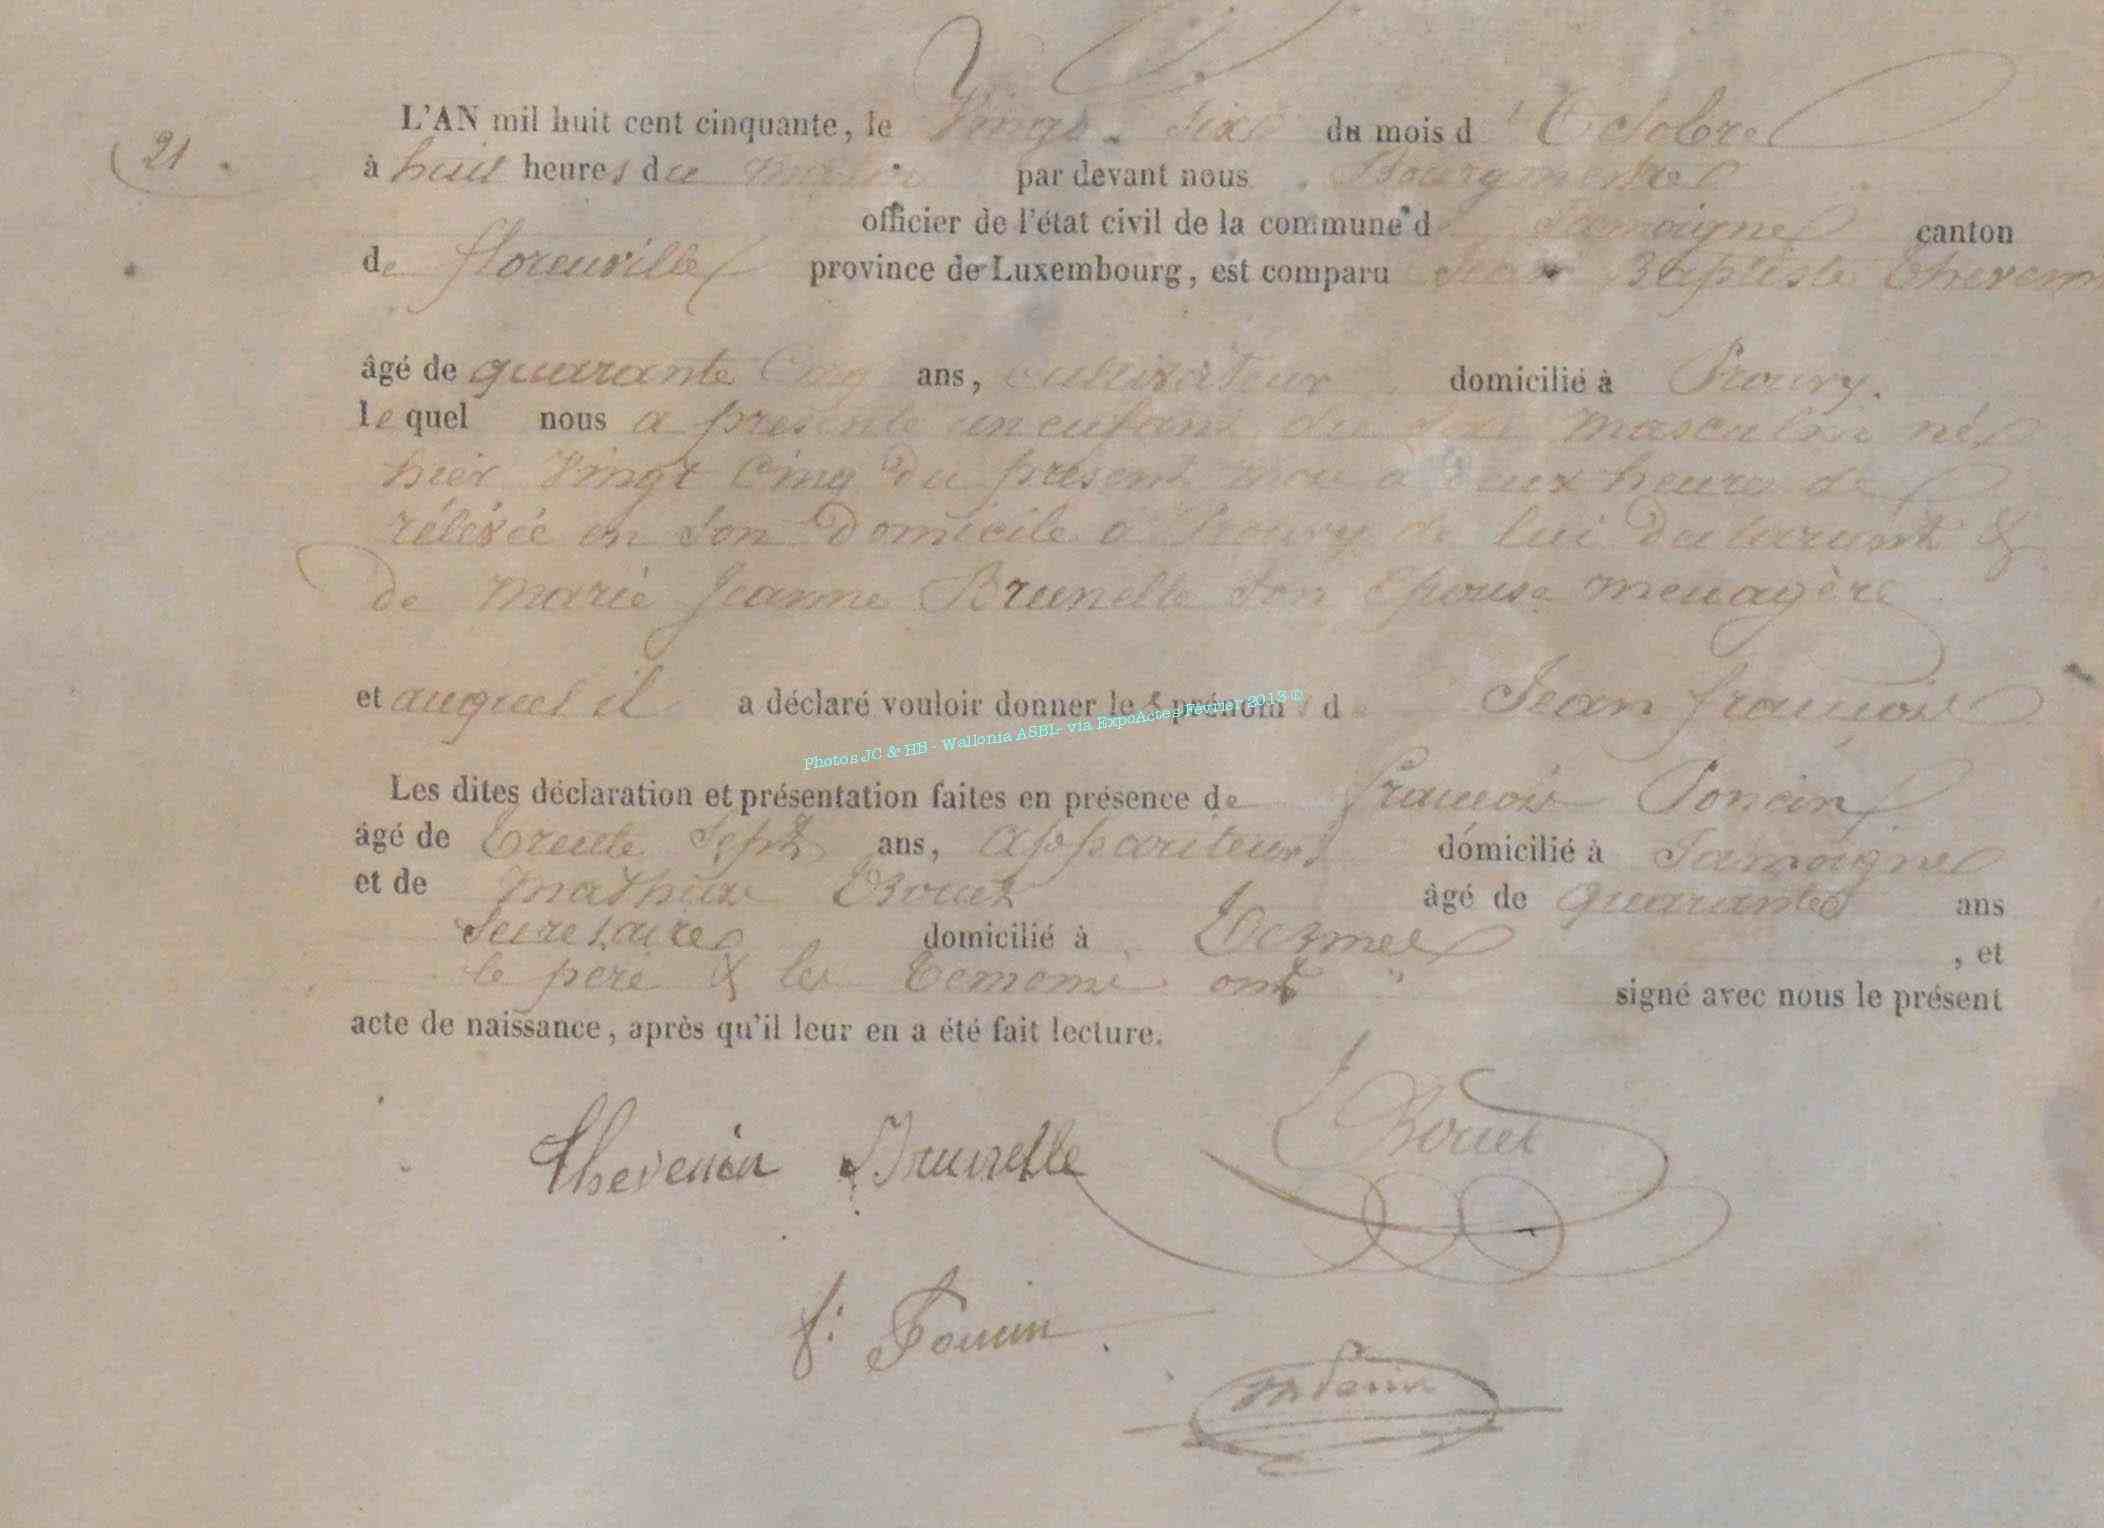 21.
L'AN mil huit cent cinquante, le Vingt-Six du mois d'Octobre
à huit heures du matin par devant nous Bourgmestre
officier de l'état civil de la commune de Jamoigne canton
de florenville province de Luxembourg, est comparu Jean Baptiste Thevenin
âgé de quarante Cinq ans, cultivateur domicilié à Prouvy.
lequel nous a présenté un enfant du sexe masculin né
hier Vingt Cinq du présent mois à deux heures de
rélévée en son domicile à Prouvy de lui déclarant &
de Marie Jeanne Brunelle son épouse menagère
et auquel il a déclaré vouloir donner les prénoms de Jean françois
Photos JC & HB - Wallonia ASBL- via ExpoActes Février 2013 ©
Les dites déclaration et présentation faites en présence de françois Poncin
âgé de trente Sept ans, appariteur domicilié à Jamoigne
et de Mathieu Bouet âgé de quarante ans
Secretaire domicilié à Izel, et
le père & les temoins ont signé avec nous le présent
acte de naissance, après qu'il leur en a été fait lecture.
Thevenin Brunelle Bouet
f: Poncin